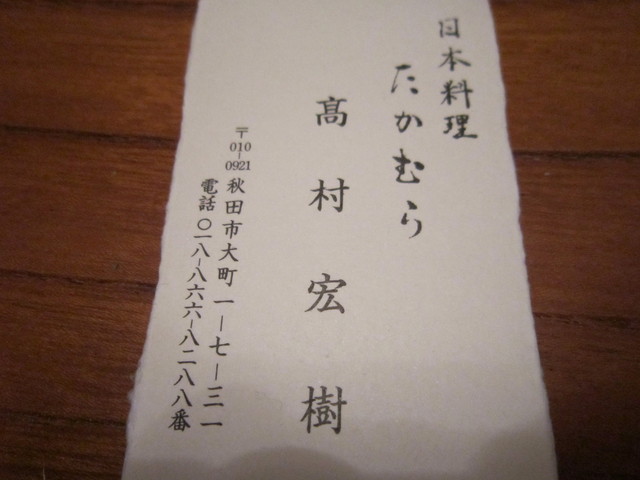 日本料理
たかむら
髙村宏樹
〒010-0921 秋田市大町一-七-三一
電話 〇一八-八六六-八二八八番